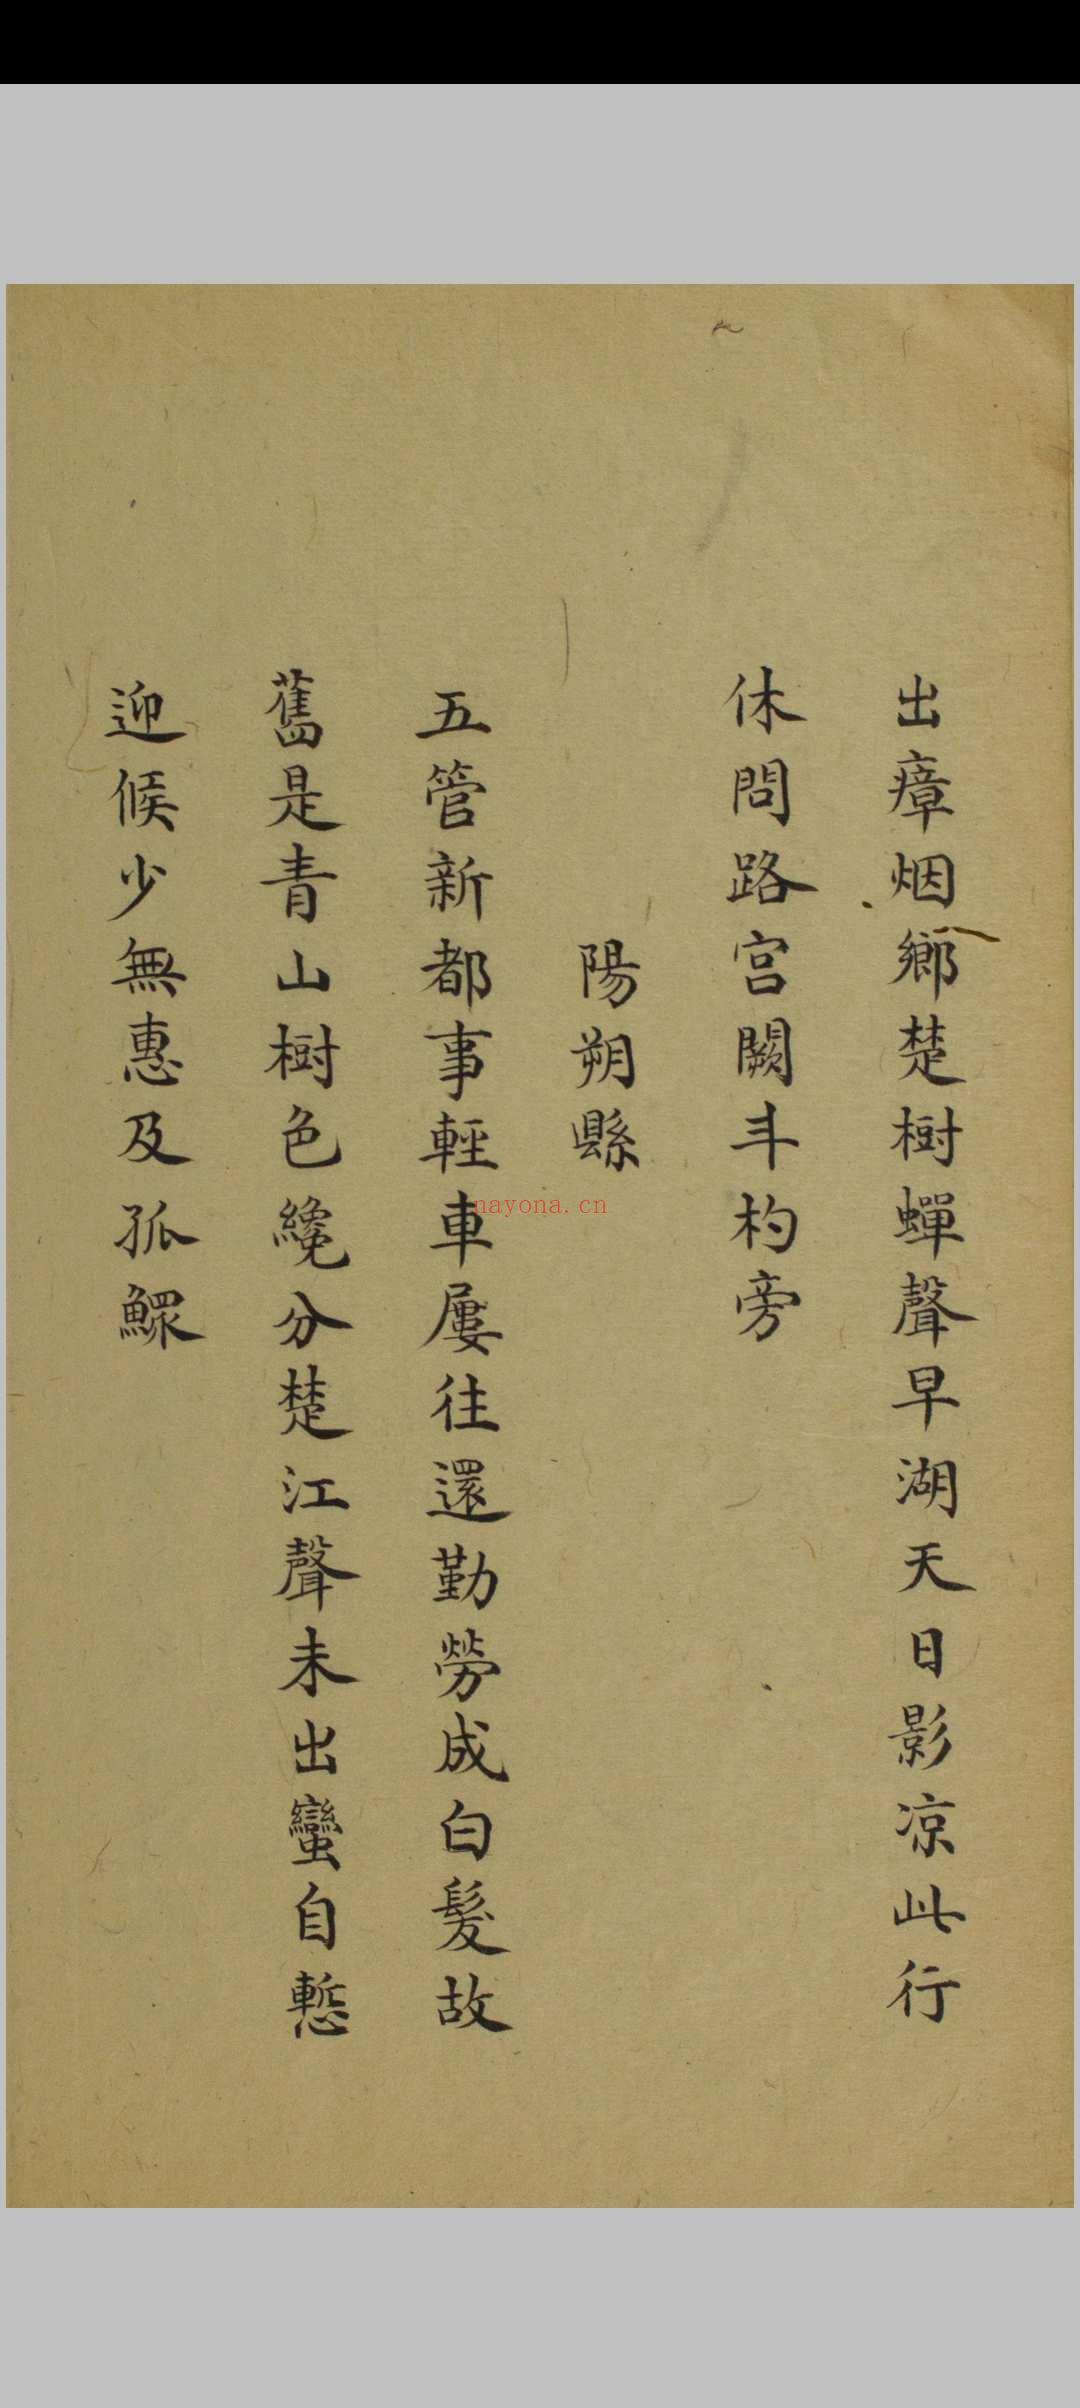 出瘴烟鄉楚樹蟬聲早湖天日影凉此行
休問路宫闕斗杓旁
陽朔縣
五管新都事輕車屢往還勤勞成白髮故
舊是青山樹色纔分楚江聲未出蠻自慙
迎候少無惠及孤鰥
nayona.cn